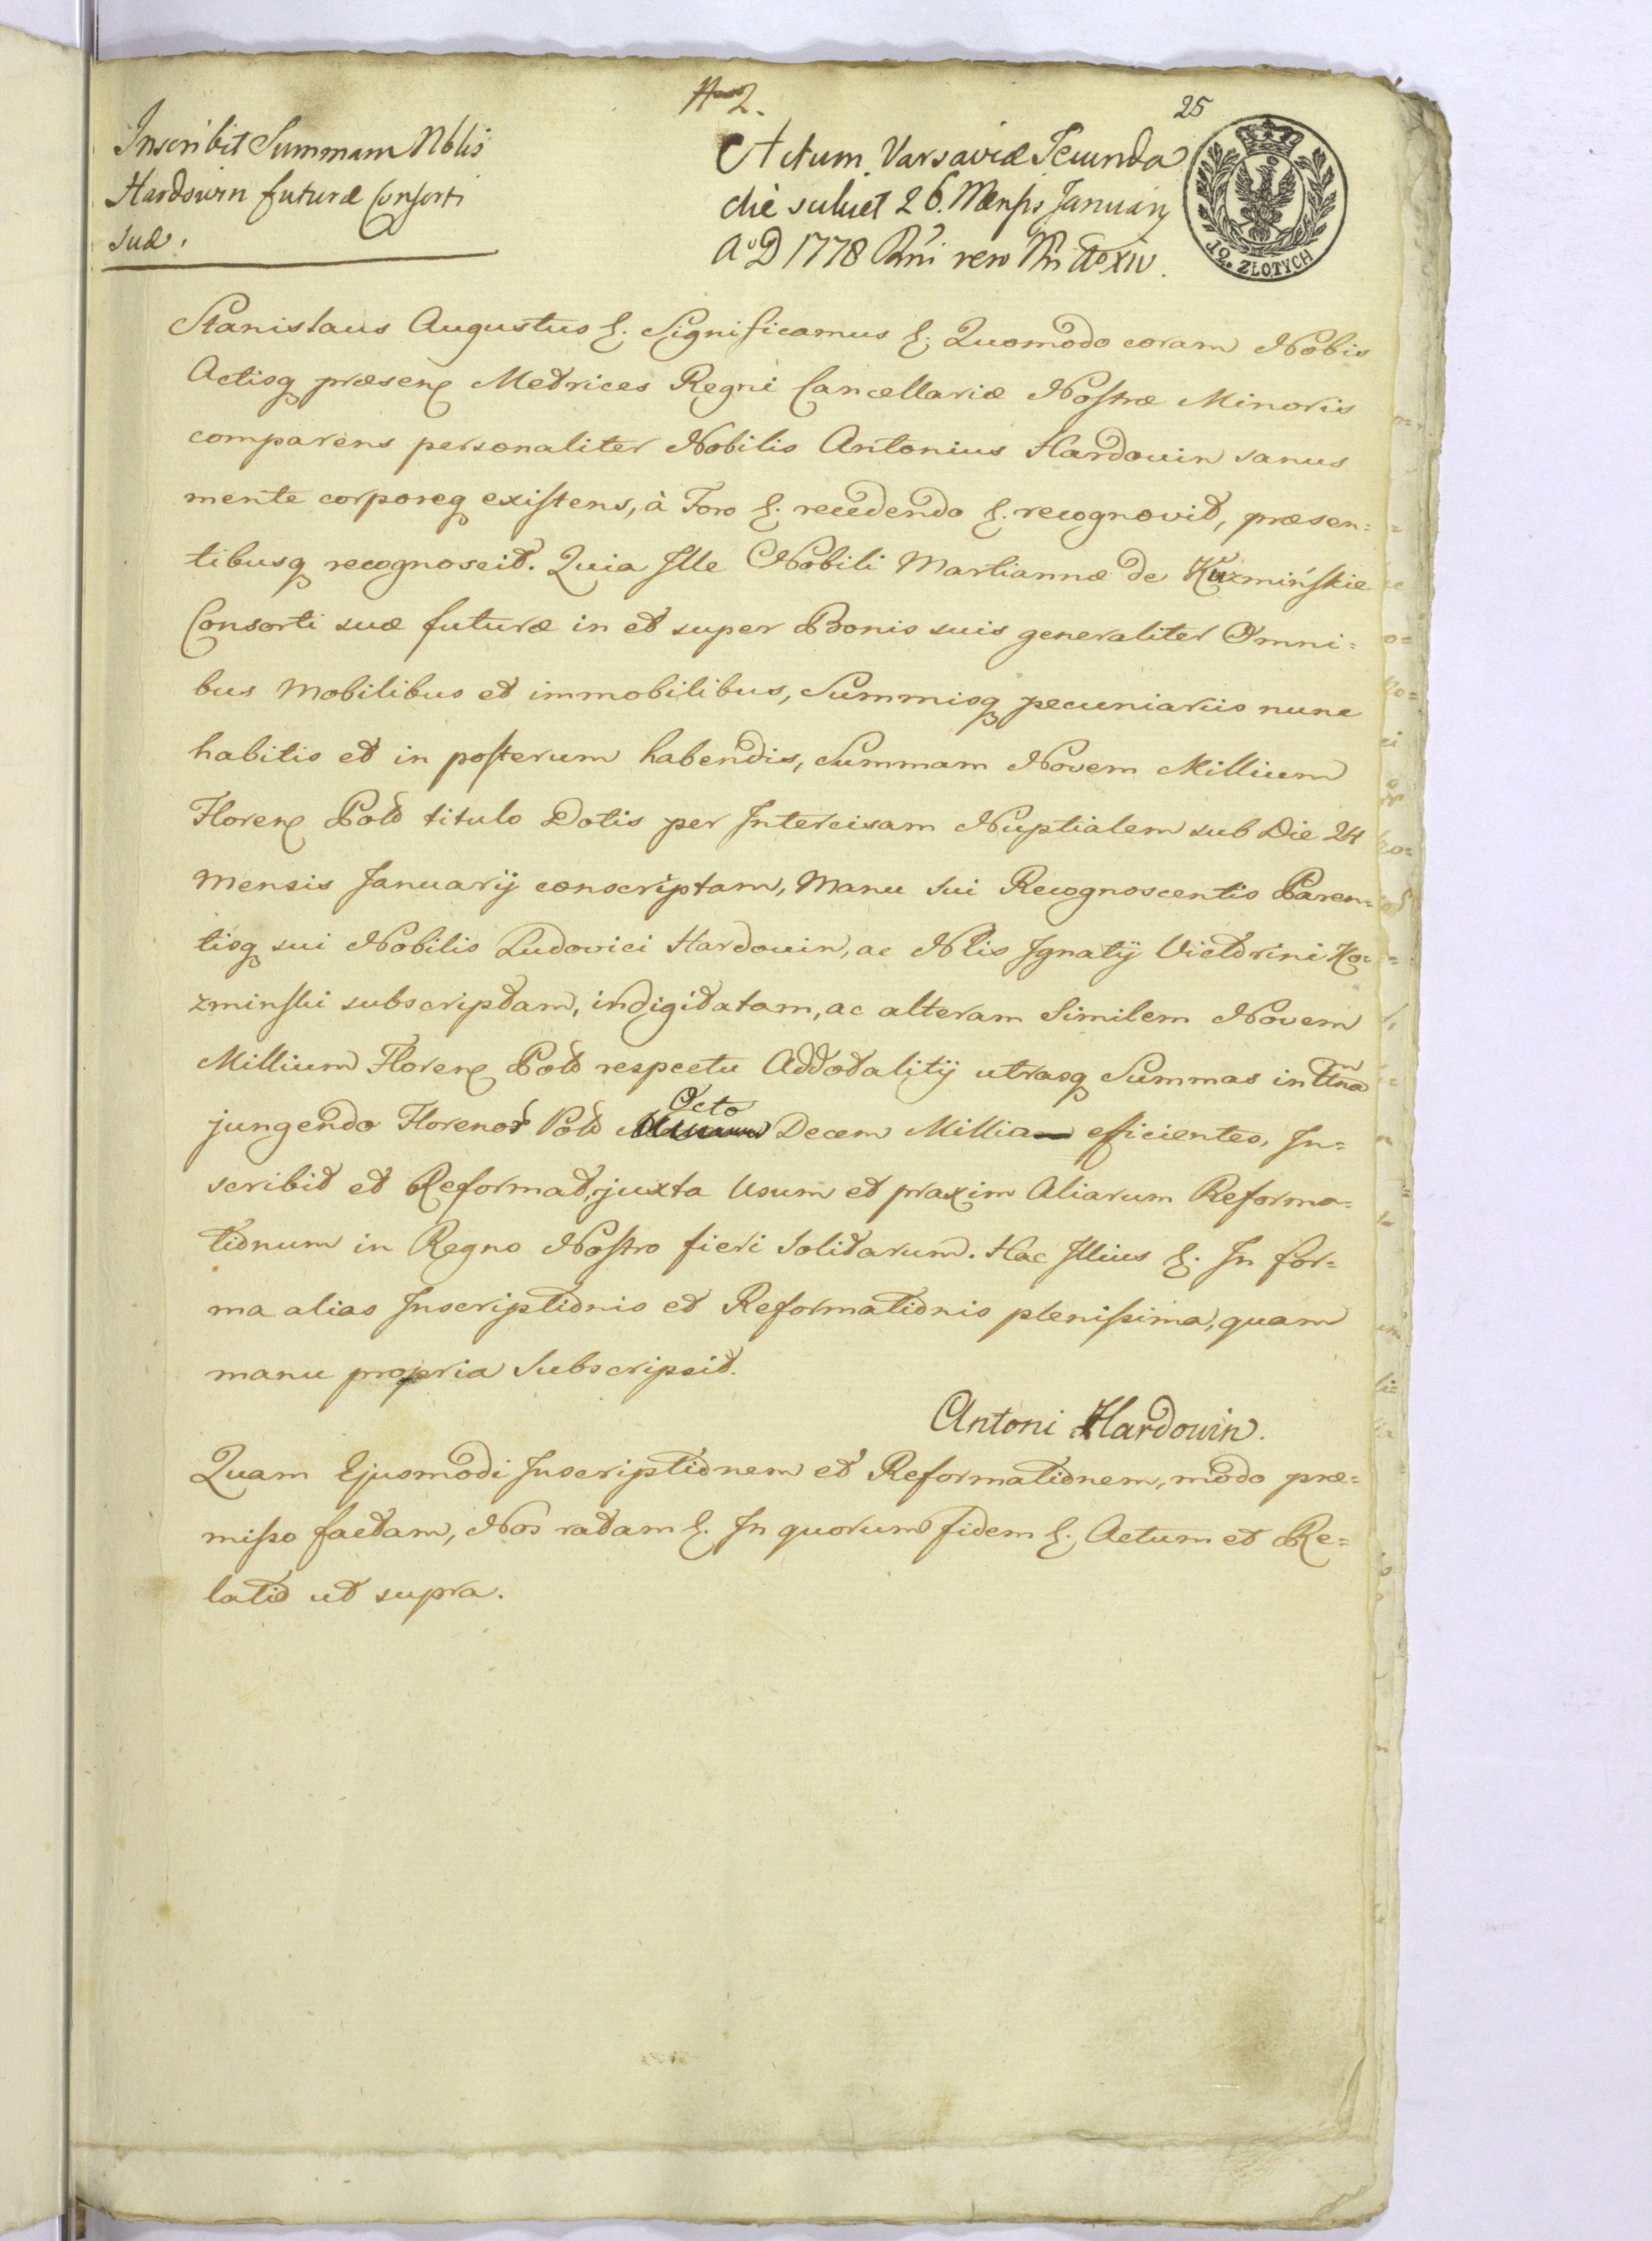 N 2.
25
Inscribit Summam Nblis
Hardowin futuræ Consorti
suæ.
Actum Varsaviæ Secunda
die scilicet 26. Mensis Januarij
A̅o D 1778 Rni vero Nri A̅o XIV.
12. ZŁOTYCH
Stanislaus Augustus &. Significamus &. Quomodo coram Nobis
Actisq præsen Metrices Regni Cancellariæ Nostræ Minoris
comparens personaliter Nobilis Antonius Hardouin sanus
mente corporeq existens, à Foro &. recedendo &. recognovit, præsen=
tibusq recognoscit. Quia Ille Nobili Mariannæ de Kuzmińskie
Consorti suæ futuræ in et super Bonis suis generaliter Omni=
bus Mobilibus et immobilibus, Summisq pecuniariis nunc
habitis et in posterum habendis, Summam Novem Millium
Floren Pold titulo Dotis per Intercisam Nuptialem sub Die 24
Mensis Januarij conscriptam, Manu sui Recognoscentis Paren=
tisq sui Nobilis Ludovici Hardouin, ac Nlis Ignatij Victorini Ko=
zminski subscriptam, indigitatam, ac alteram Similem Novem
Millium Floren Pold respectu Addotalitij utrasq Summas in Unam
jungendo Florenos Pold Octo Decem Millia efficientes, In=
scribit et Reformat, juxta Usum et praxim Aliarum Reforma=
tionum in Regno Nostro fieri Solitarum. Hac Illius &. In for=
ma alias Inscriptionis et Reformationis plenissima, quam
manu propria Subscripsit.
Antoni Hardouin.
Quam Ejusmodi Inscriptionem et Reformationem, modo præ=
misso factam, Nos ratam &. In quorum fidem &. Actum et Re=
latio ut supra.